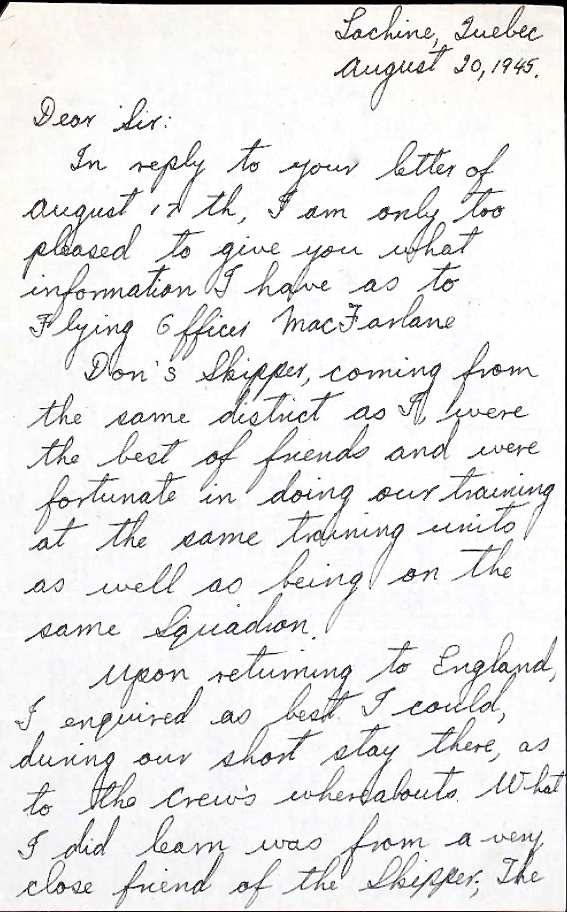 Lachine, Quebec
August 20, 1945.
Dear Sir:
In reply to your letter of
August 17 th, I am only too
pleased to give you what
information I have as to
Flying Officer MacFarlane
Don's Skipper, coming from
the same district as I, were
the best of friends and were
fortunate in doing our training
at the same training units
as well as being on the
same Squadron.
Upon returning to England,
I enquired as best I could,
during our short stay there, as
to the crew's whereabouts. What
I did learn was from a very
close friend of the Skipper; The